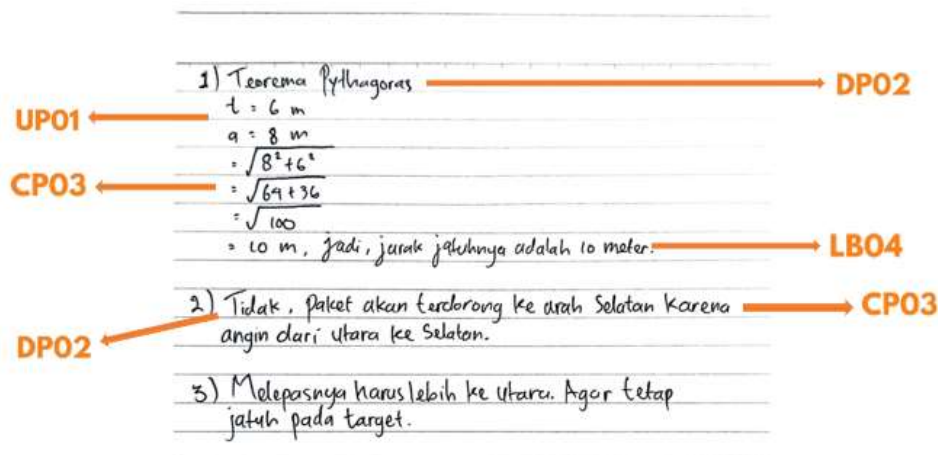 1) Teorema Pythagoras DP02
UP01 t = 6 m
a = 8 m
= √8²+6²
CP03 = √64+36
= √100
= 10 m, jadi, jarak jatuhnya adalah 10 meter. LB04
2) Tidak, paket akan terdorong ke arah Selatan karena CP03
DP02 angin dari utara ke Selatan.
3) Melepasnya harus lebih ke utara. Agar tetap
jatuh pada target.